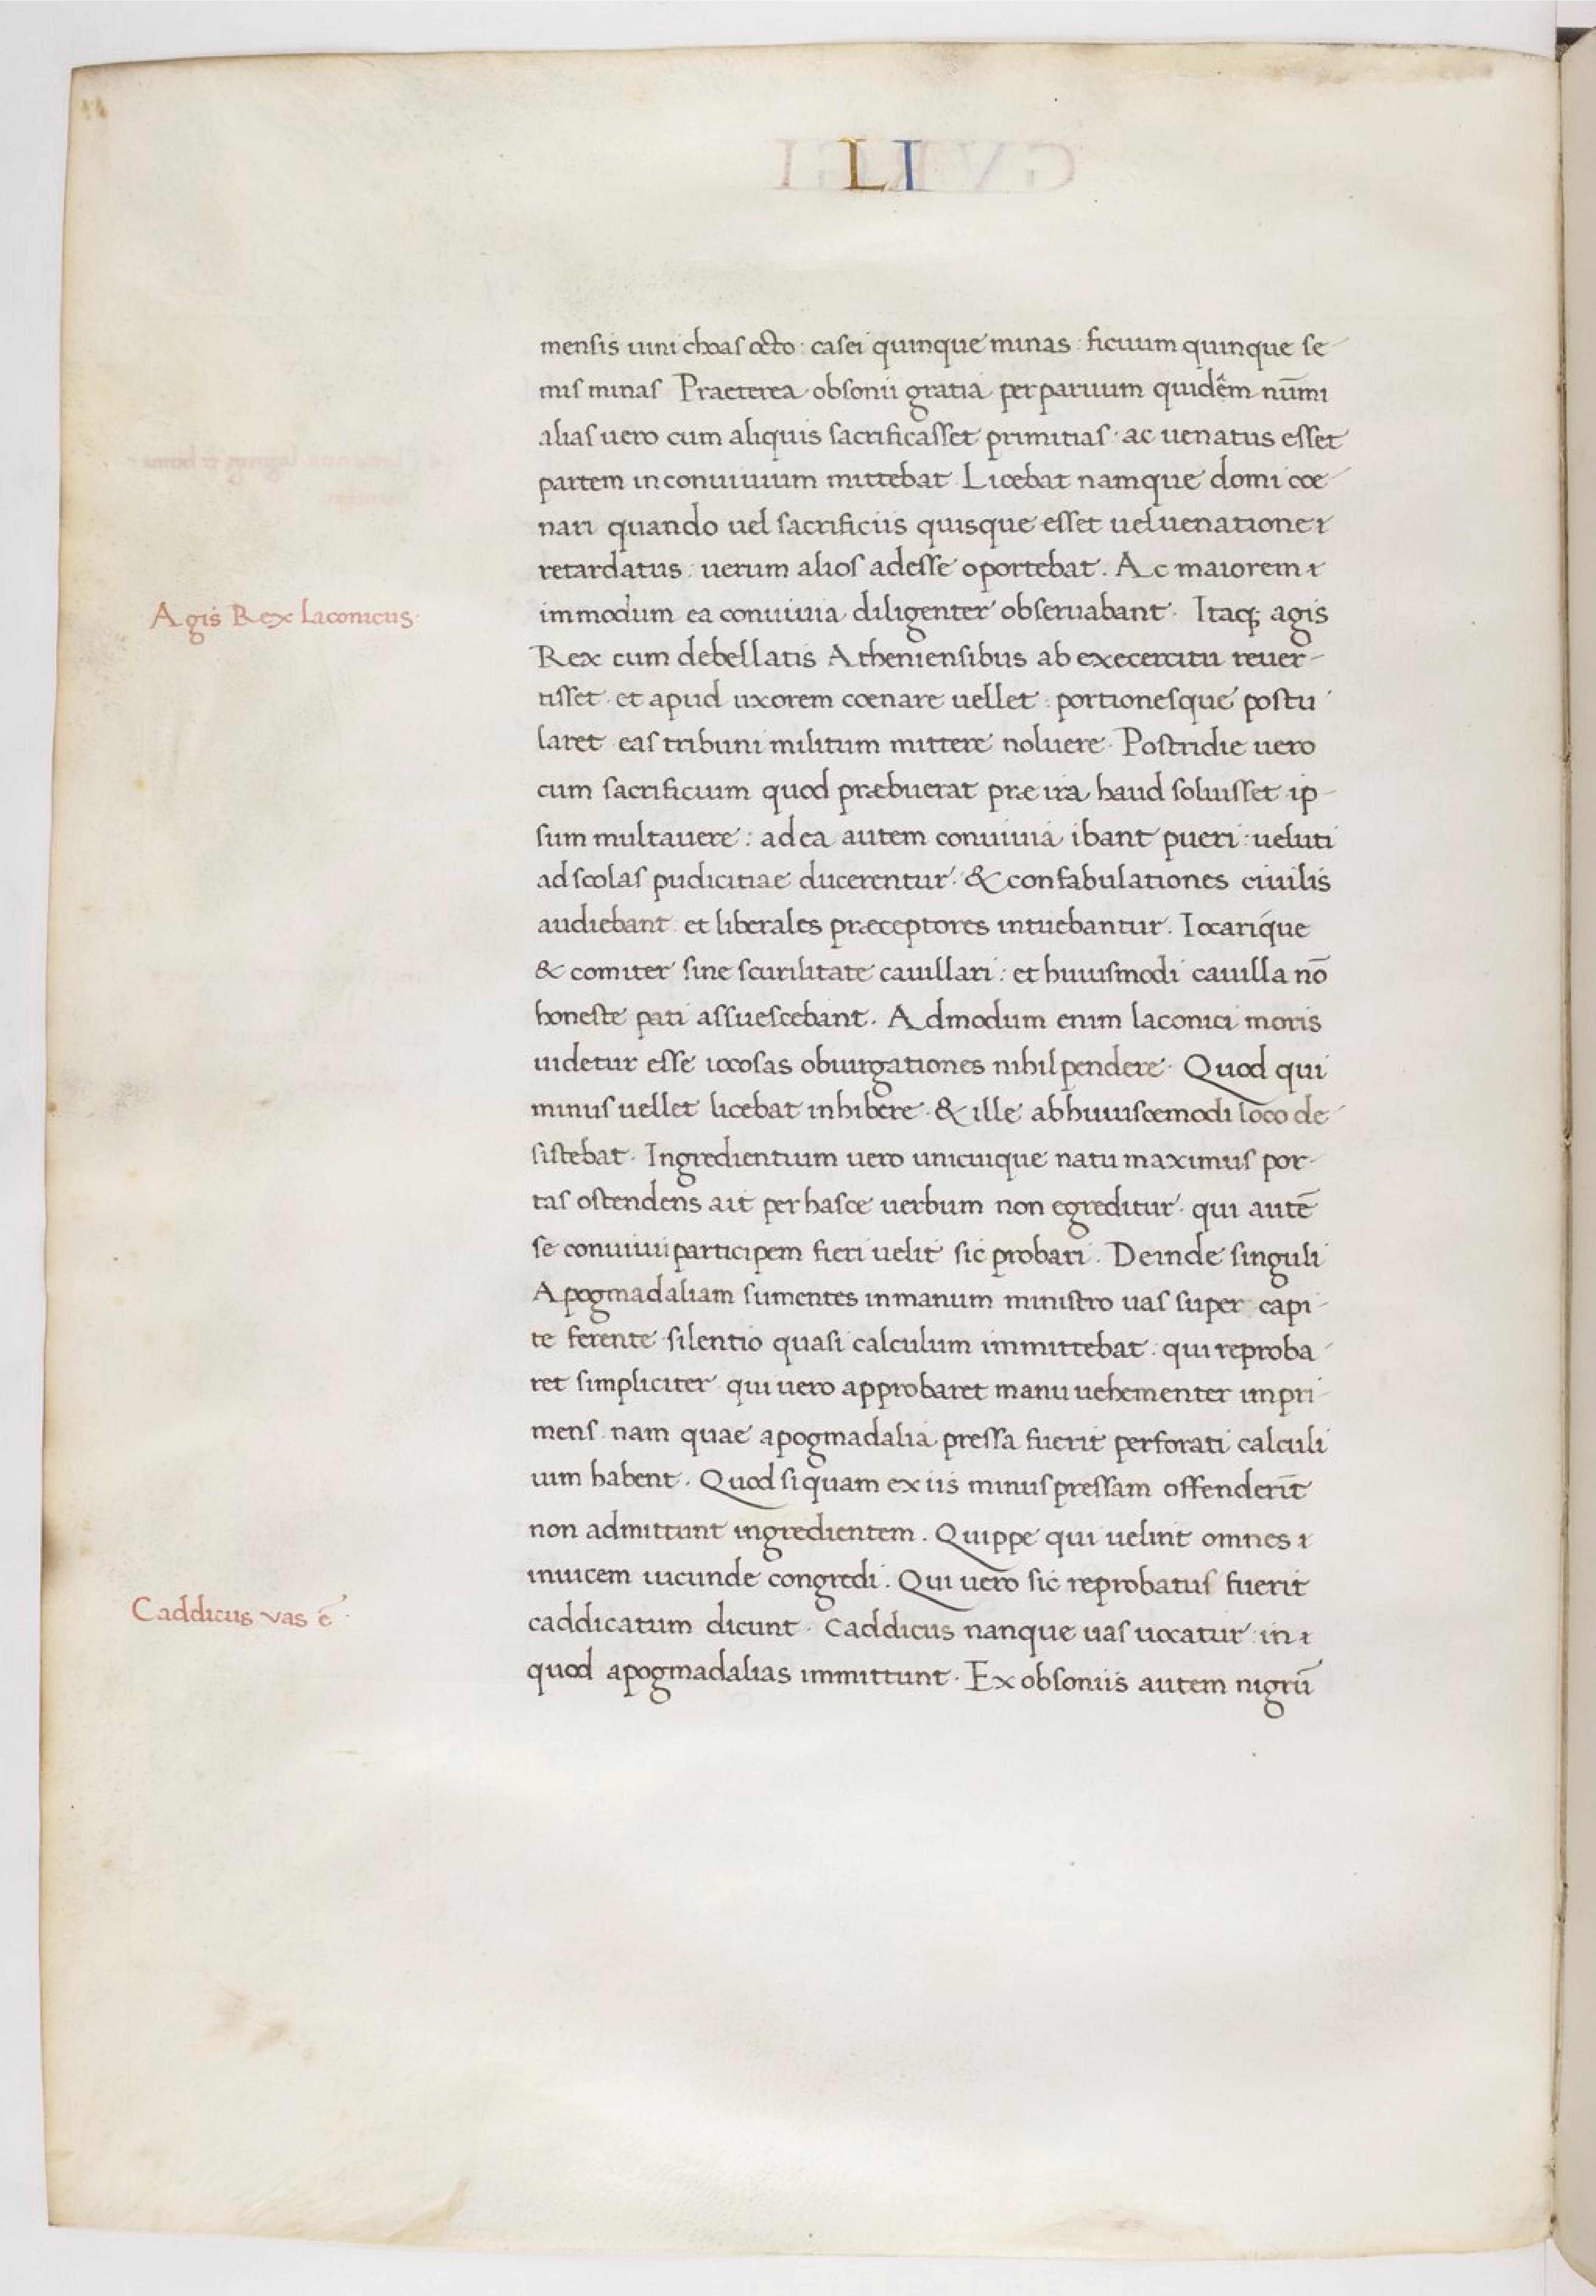 LI
mensis uini choas octo : casei quinque minas : ficuum quinque se-
mis minas Praeterea obsonii gratia perparuum quidem nūmi
alias uero cum aliquis sacrificasset primitias · ac uenatus esset
partem in conuiuium mittebat Licebat namque domi coe-
nari quando uel sacrificiis quisque esset uel uenatione
retardatus : uerum alios adesse oportebat . Ac maiorem
immodum ea conuiuia diligenter obseruabant · Itaq; agis
Agis Rex laconicus ·
Rex cum debellatis Atheniensibus ab execercitu reuer-
tisset · et apud uxorem coenare uellet : portionesque postu
laret eas tribuni militum mittere noluere · Postridie uero
cum sacrificium quod præbuerat præ ira haud soluisset ip-
sum multauere : ad ea autem conuiuia ibant pueri : ueluti
ad scolas pudicitiae ducerentur · & confabulationes ciuilis
audiebant et liberales præceptores intuebantur . Iocarique
& comiter sine scurilitate cauillari : et huiusmodi cauilla nō
honeste pati assuescebant . Admodum enim laconici moris
uidetur esse iocosas obiurgationes nihil pendere · Quod qui
minus uellet licebat inhibere · & ille ab huiuscemodi loco de-
sistebat · Ingredientium uero unicuique natu maximus por-
tas ostendens ait per hasce uerbum non egreditur · qui autē
se conuiuii participem fieri uelit sic probari . Deinde singuli
Apogmadaliam sumentes in manum ministro uas super capi-
te ferente silentio quasi calculum immittebat : qui reproba-
ret simpliciter qui uero approbaret manu uehementer impri-
mens nam quae apogmadalia pressa fuerit perforati calculi
uim habent . Quod si quam ex iis minus pressam offenderīt
non admittunt ingredientem . Quippe qui uelint omnes
inuicem iucunde congredi . Qui uero sic reprobatus fuerit
Caddicus vas ē ·
caddicatum dicunt · Caddicus nanque uas uocatur in
quod apogmadalias immittunt · Ex obsoniis autem nigrū